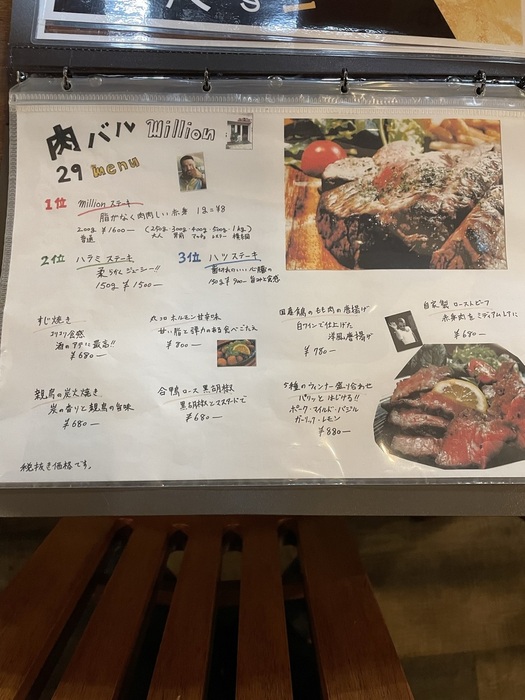 肉バル Million
29 menu
1位 millionステーキ
脂がなく肉肉しい赤身 1g=¥8
200g ¥1600ー (250g 300g 400g 500g 1kg)
普通 大人
2位 ハラミステーキ
柔らかくジューシー!!
150g ¥1500ー
3位 ハツステーキ
150g ¥900ー 旨味と食感
すじ焼き
コリコリ食感
酒のアテに最高!!
¥680ー
丸コロホルモン甘辛味
甘い脂と弾力のある食べごたえ
¥800ー
国産鶏のもも肉の唐揚げ
白ワインで仕上げた
洋風唐揚げ
¥780ー
自家製ローストビーフ
赤身肉をミディアムレアに
¥680ー
親鳥の炭火焼き
炭の香りと親鳥の旨味
¥680ー
合鴨ロース黒胡椒
黒胡椒とマスタードで
¥680ー
5種のウィンナー盛り合わせ
パリッとはじける!!
ポーク・マイルド・バジル
ガーリック・レモン
¥880ー
税抜き価格です。